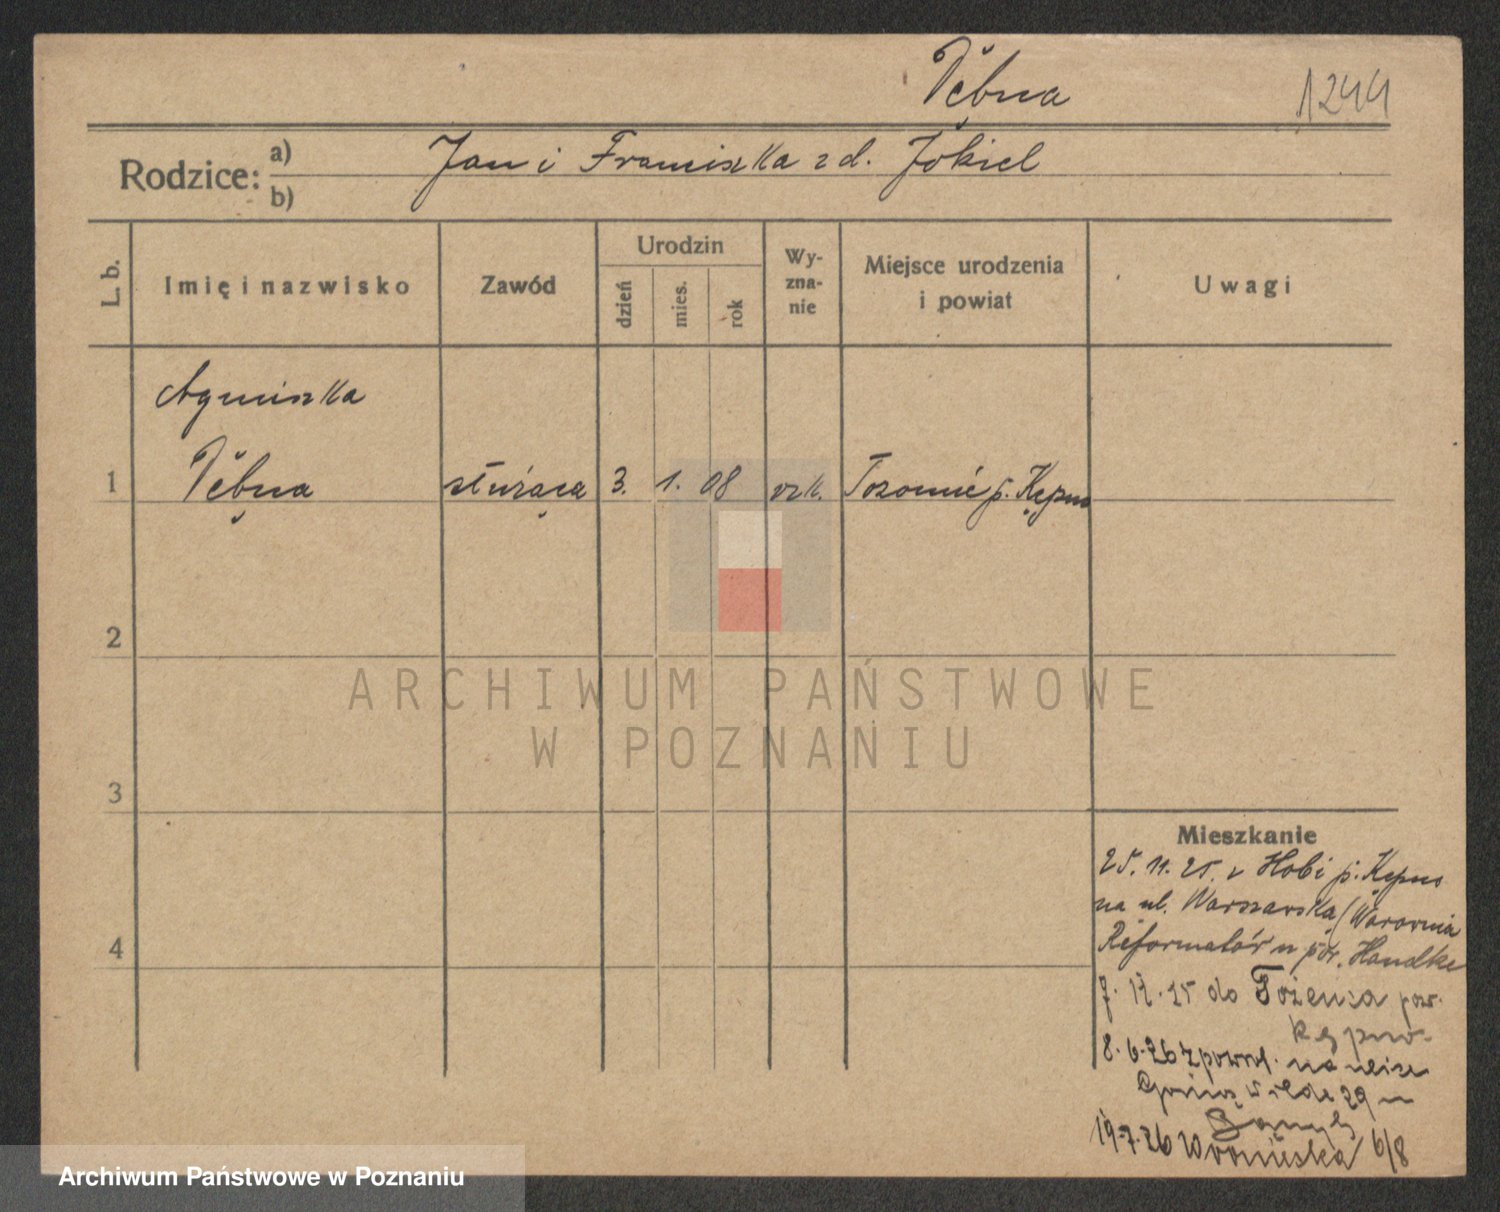 Vębna
1244
Rodzice: a)
b)
Jan i Franciszka z d. Jokiel
L. b.
Imię i nazwisko
Zawód
Urodzin
dzień
mies.
rok
Wy-
zna-
nie
Miejsce urodzenia
i powiat
Uwagi
Agnieszka
1 Vębna służąca 3. 1. 08 rzk. p. Kępno
2
3
4
ARCHIWUM PAŃSTWOWE
W POZNANIU
Mieszkanie
25. 11. 25. z p. Kępno
na ul. Warszawska
Reformatów u por. Handke
7. 12. 25 do pow.
Kępno.
8. 6. 26 z powrot. na ulice
Górna Wilda 29 u
19.7.26 Woroniecka 6/8
Archiwum Państwowe w Poznaniu